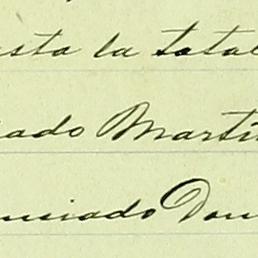 sta la total
ado Martí
nsiado Don